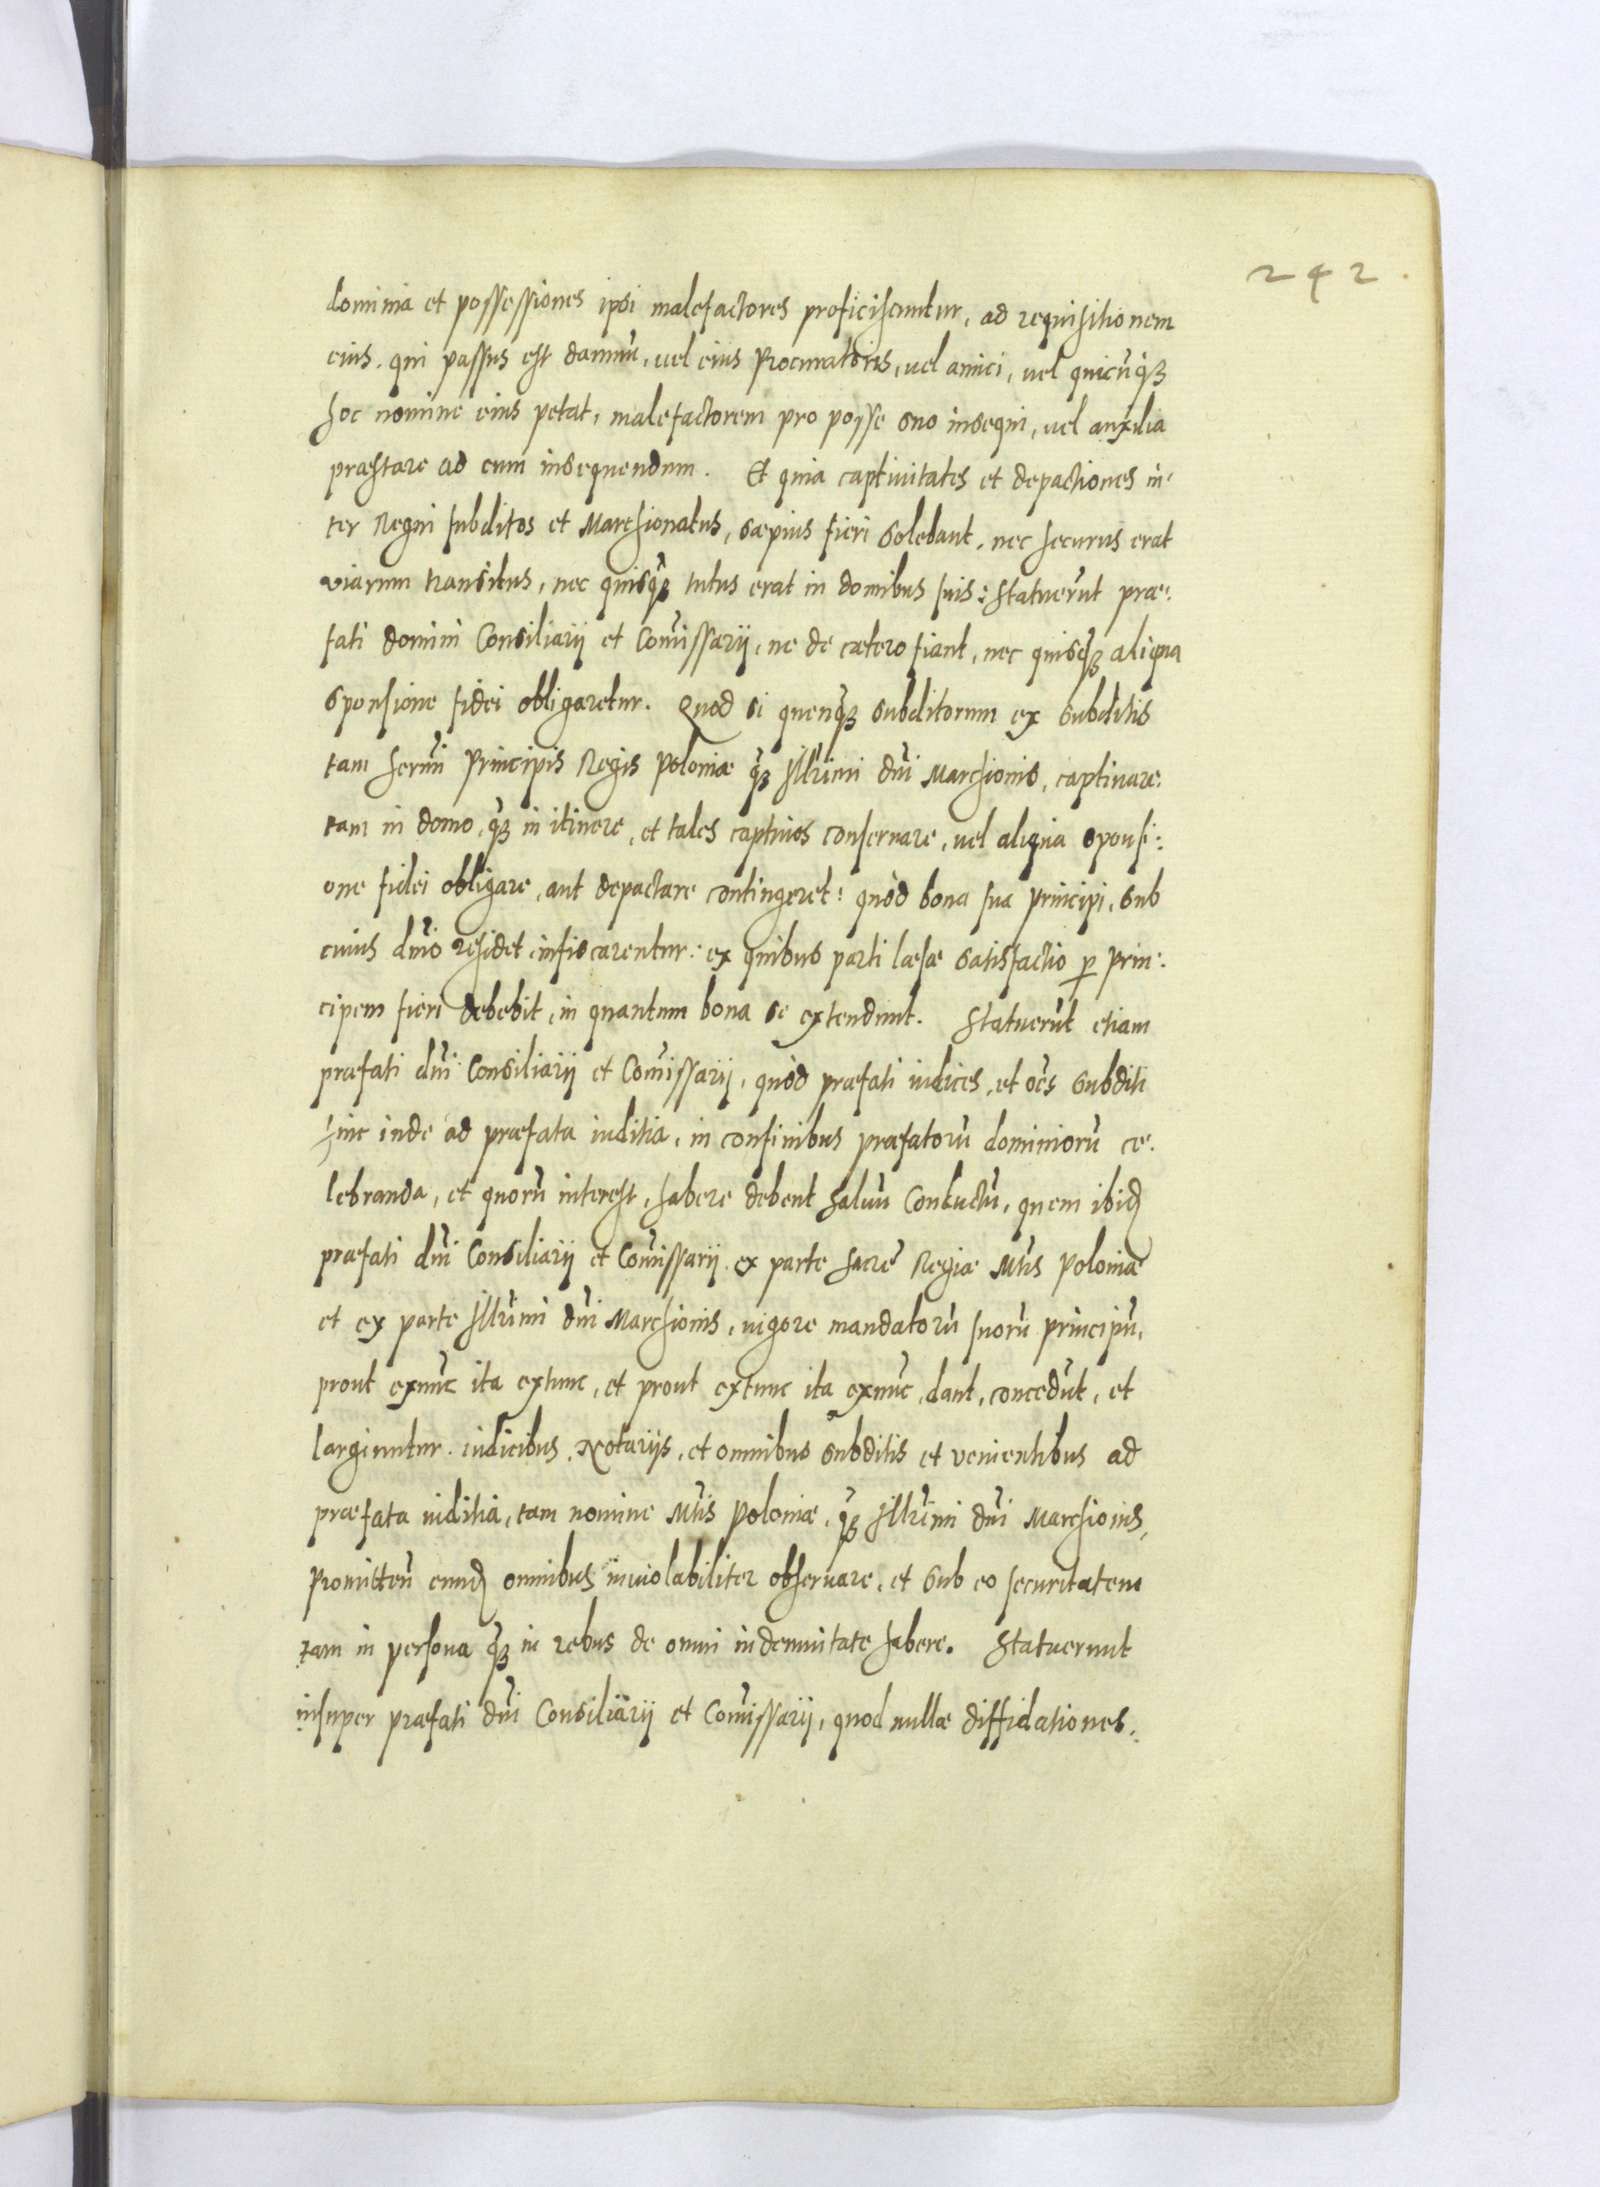 242.
dominia et possessiones ipsi malefactores proficiscuntur, ad requisitionem
eius. qui passus est damnū, uel eius Procuratoris, uel amici, uel quicūq̃ꝫ
hoc nomine eius petat, malefactorem pro posse suo insequi, uel auxilia
præstare ad eum insequendum. Et quia captiuitates et depactiones in-
ter Regni subditos et Marchionatus, sæpius fieri solebant, nec securus erat
viarum transitus, nec quisq̃ꝫ tutus erat in domibus suis: Statuerūt præ:
fati domini Consiliarij et Com̄issarij, ne de cætero fiant, nec quisq̃ꝫ aliqua
sponsione fidei obligaretur. Quod si quenq̃ꝫ subditorum ex subditis
tam Serm̄i Principis Regis Poloniæ q̃ꝫ Illr̄imi dn̄i Marchionis, captiuare:
tam in domo, q̃ꝫ in itinere, et tales captiuos conseruare, uel aliqua sponsi:
one fidei obligare, aut depactare contingeret: quòd bona sua Principi, sub
cuius dn̄io residet, infiscarentur: ex quibus parti læsæ satisfactio ꝑ Prin:
cipem fieri debebit, in quantum bona se extendunt. Statuerūt etiam
præfati dn̄i Consiliarij et Com̄issarij, quòd præfati iudices, et oēs subditi
hinc inde ad præfata iuditia, in confinibus præfatorū dominiorū ce:
lebranda, et quorū interest, habere debent Saluū Conductū, quem ibid.
præfati dn̄i Consiliarij et Com̄issarij ex parte Sacrē Regiæ Mtis Poloniæ
et ex parte Illr̄imi dn̄i Marchionis, uigore mandatorū suorū principū,
prout exnūc ita extunc, et prout extunc ita exnūc, dant, concedūt, et
largiuntur. iudicibus, Notarijs, et omnibus subditis et venientibus ad
præfata iuditia, tam nomine Mtis Poloniæ, q̃ꝫ Illr̄imi dn̄i Marchionis,
Promitteñ eund. omnibus inuiolabiliter obseruare, et sub eo securitatem
tam in persona q̃ꝫ in rebus de omni indemnitate habere. Statuerunt
insuper præfati dn̄i Consiliarij et Com̄issarij, quod nullæ diffidationes.